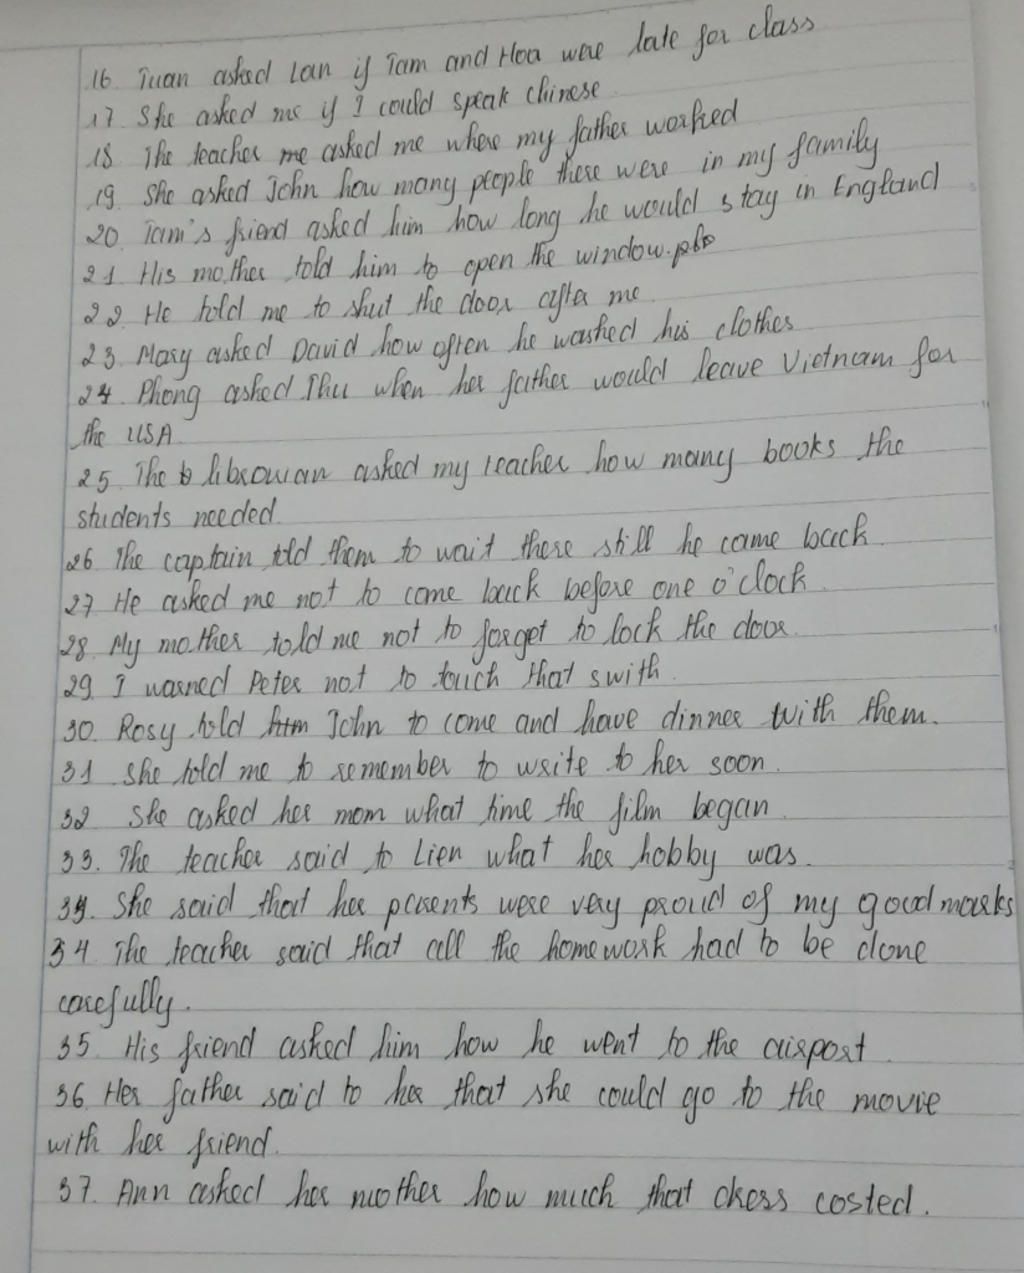 16. Tuan asked Lan if Tam and Hoa were late for class
17. She asked me if I could speak chinese
18 The teacher me asked me where my father worked
19. She asked John how many people there were in my family
20. Tam's friend asked him how long he would stay in England
21. His mother told him to open the window.
22. He told me to shut the door after me
23. Mary asked David how often he washed his clothes
24. Phong asked Thu when her father would leave Vietnam for
the USA
25. The librowian asked my teacher how many books the
students needed
26. The captain told them to wait there still he came back
27. He asked me not to come back before one o'clock
28. My mother told me not to forget to lock the door
29. I warned Peter not to touch that swith
30. Rosy told him John to come and have dinner with them.
31 She told me to remember to write to her soon
32 She asked her mom what time the film began
33. The teacher said to Lien what her hobby was
34. She said that her parents were very proud of my good marks
34 The teacher said that all the homework had to be done
carefully.
35. His friend asked him how he went to the airport
36. Her father said to her that she could go to the movie
with her friend.
37. Ann asked her mother how much that dress costed.